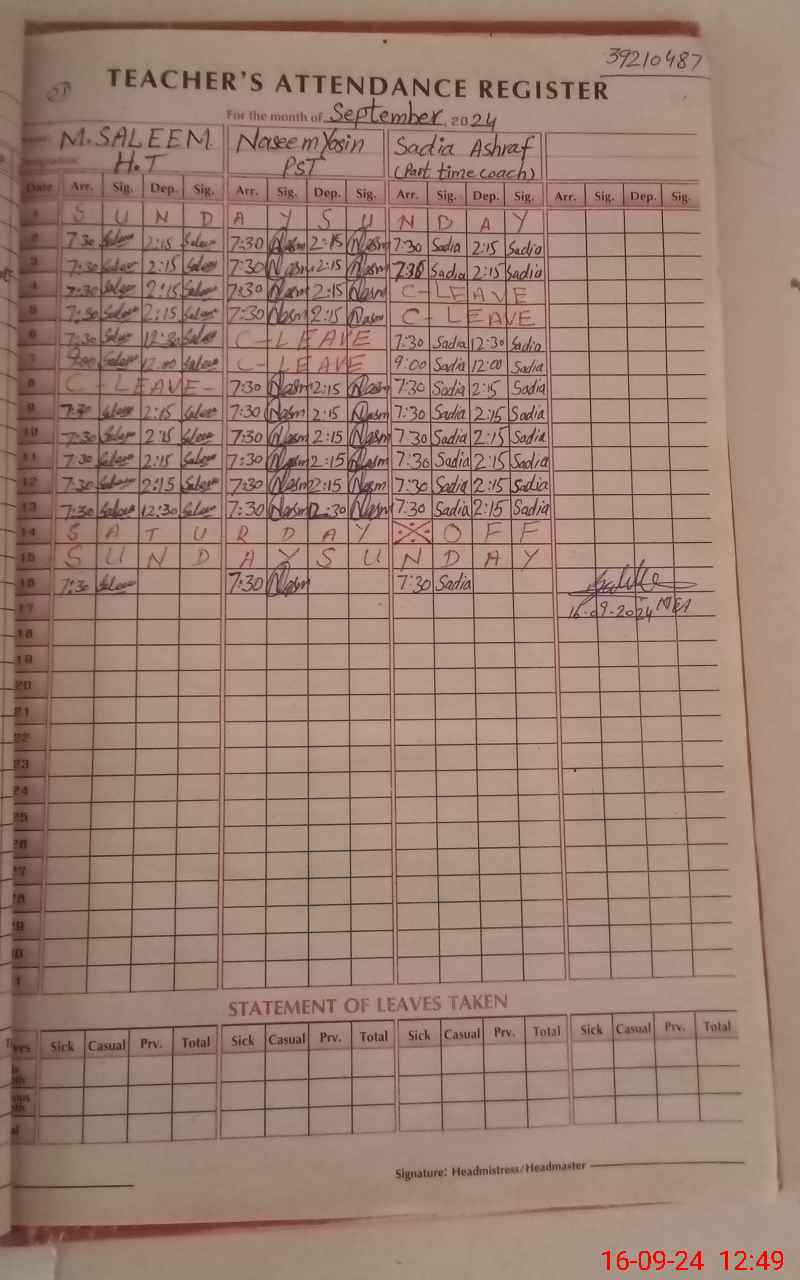 39210487
TEACHER'S ATTENDANCE REGISTER
For the month of September 2024
M. SALEEM Naseem Yasin Sadia Ashraf
H.T PST (Part time coach)
Date Arr. Sig. Dep. Sig. Arr. Sig. Dep. Sig. Arr. Sig. Dep. Sig. Arr. Sig. Dep. Sig.
1 S U N D A Y S U N D A Y
2 7:30 Saleem 2:15 Saleem 7:30 Nasm 2:15 Nasm 7:30 Sadia 2:15 Sadia
3 7:30 Saleem 2:15 Saleem 7:30 Nasm 2:15 Nasm 7:30 Sadia 2:15 Sadia
4 7:30 Saleem 2:15 Saleem 7:30 Nasm 2:15 Nasm C-LEAVE
5 7:30 Saleem 2:15 Saleem 7:30 Nasm 2:15 Nasm C-LEAVE
6 7:30 Saleem 12:30 Saleem C-LEAVE 7:30 Sadia 12:30 Sadia
7 9:00 Saleem 12:00 Saleem C-LEAVE 9:00 Sadia 12:00 Sadia
8 C-LEAVE- 7:30 Nasm 2:15 Nasm 7:30 Sadia 2:15 Sadia
9 7:30 Saleem 2:15 Saleem 7:30 Nasm 2:15 Nasm 7:30 Sadia 2:15 Sadia
10 7:30 Saleem 2:15 Saleem 7:30 Nasm 2:15 Nasm 7:30 Sadia 2:15 Sadia
11 7:30 Saleem 2:15 Saleem 7:30 Nasm 2:15 Nasm 7:30 Sadia 2:15 Sadia
12 7:30 Saleem 2:15 Saleem 7:30 Nasm 2:15 Nasm 7:30 Sadia 2:15 Sadia
13 7:30 Saleem 12:30 Saleem 7:30 Nasm 12:30 Nasm 7:30 Sadia 2:15 Sadia
14 S A T U R D A Y O F F
15 S U N D A Y S U N D A Y
16 7:30 Saleem 7:30 Nasm 7:30 Sadia
17 16-09-2024 MEA
18
19
20
21
22
23
24
25
26
27
28
29
30
31
STATEMENT OF LEAVES TAKEN
Sick Casual Prv. Total Sick Casual Prv. Total Sick Casual Prv. Total Sick Casual Prv. Total
Signature: Headmistress/Headmaster
16-09-24 12:49